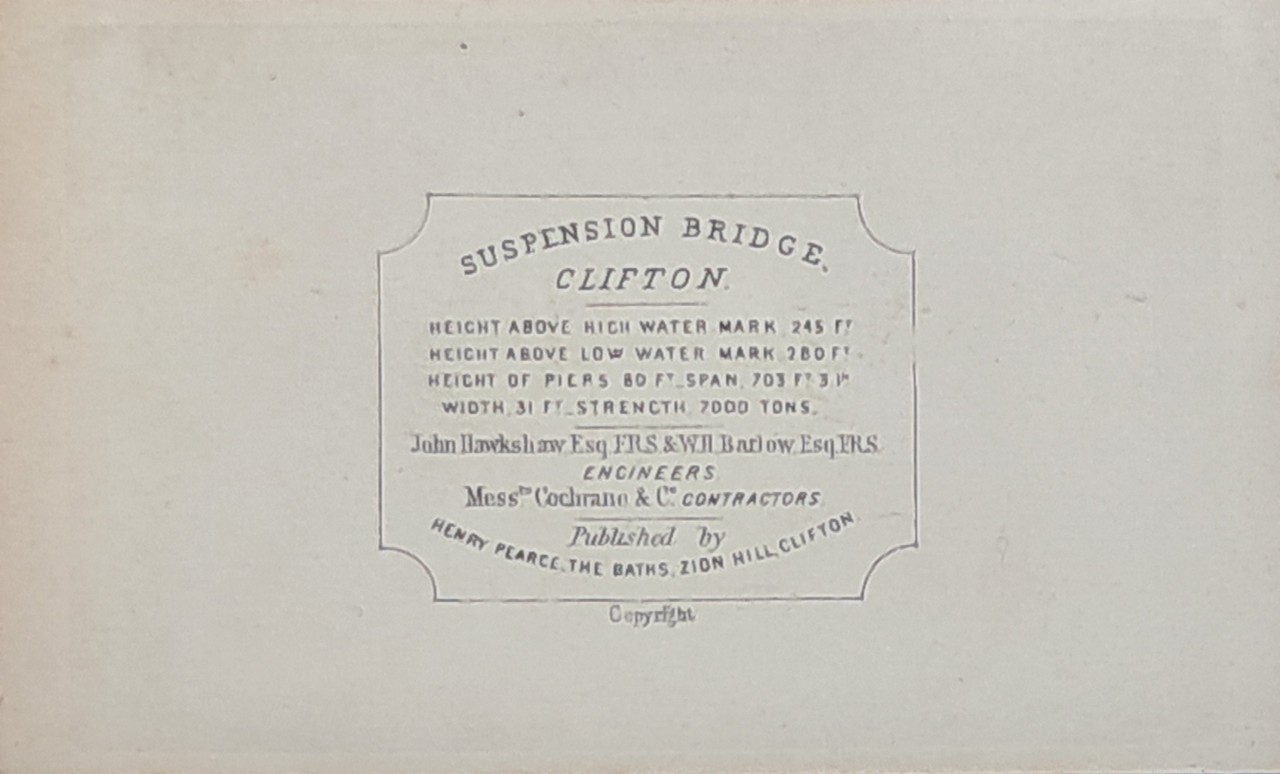 SUSPENSION BRIDGE,
CLIFTON.
HEIGHT ABOVE HIGH WATER MARK 245 FT
HEIGHT ABOVE LOW WATER MARK 280 FT
HEIGHT OF PIERS 80 FT_SPAN, 703 FT 3 IN
WIDTH, 31 FT_STRENGTH, 7000 TONS.
John Hawkshaw Esq F.R.S. & W.H. Barlow Esq. F.R.S.
ENGINEERS
Messrs Cochrane & Co CONTRACTORS.
Published by
HENRY PEARCE, THE BATHS, ZION HILL, CLIFTON.
Copyright